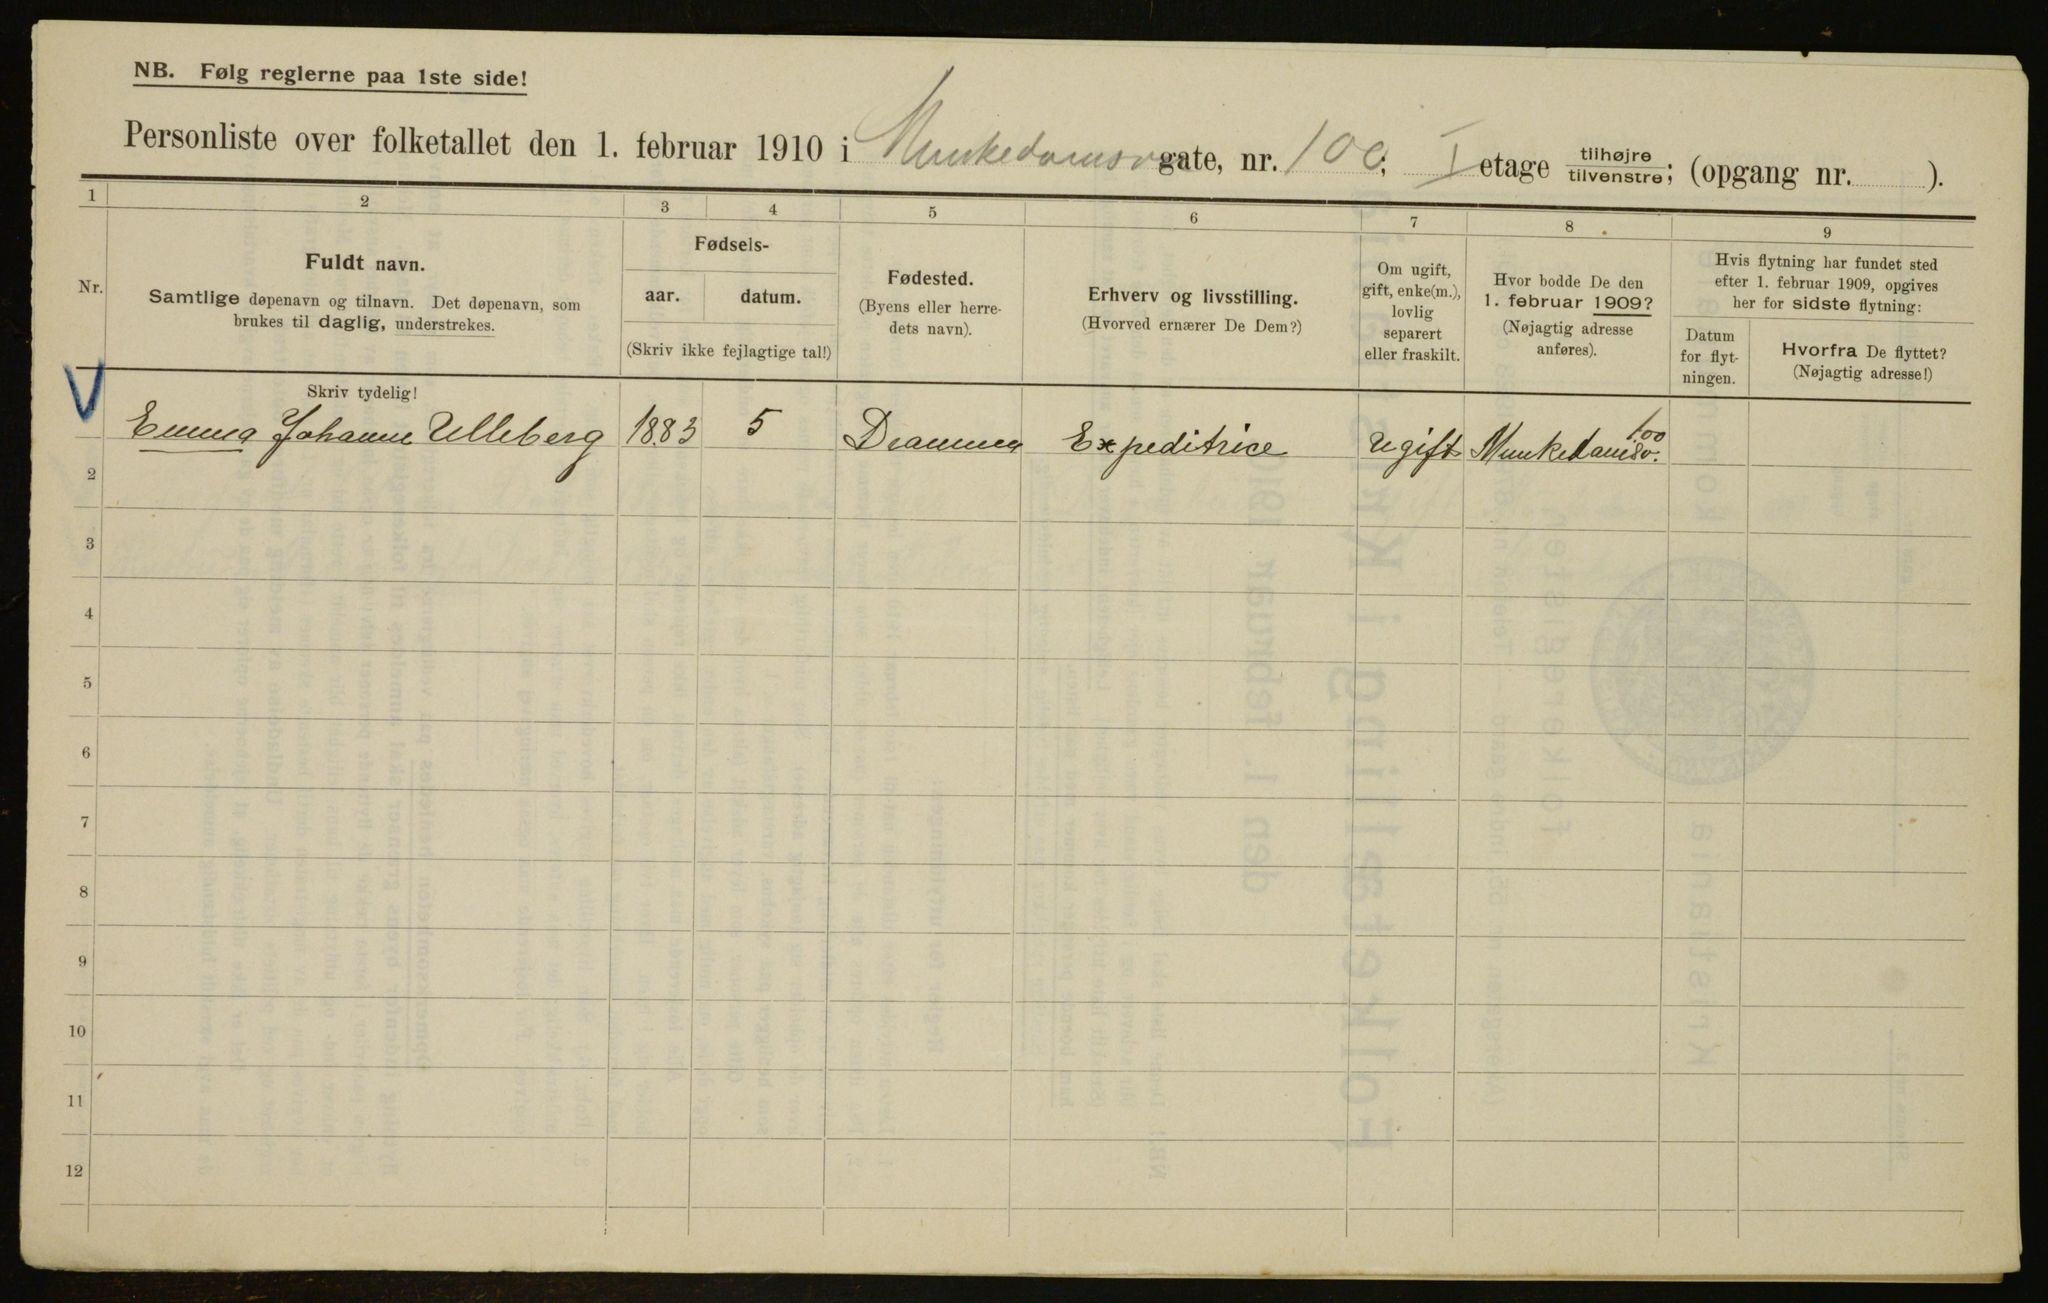 NB. Følg reglerne paa 1ste side!
Personliste over folketallet den 1. februar 1910 i Munkedamsv. gate, nr. 100; I etage tilhøjre tilvenstre; (opgang nr. ).
1 2 3 4 5 6 7 8 9
Nr.
Fuldt navn.
Samtlige døpenavn og tilnavn. Det døpenavn, som
brukes til daglig, understrekes.
Fødsels-
aar. datum.
(Skriv ikke fejlagtige tal!)
Fødested.
(Byens eller herre-
dets navn).
Erhverv og livsstilling.
(Hvorved ernærer De Dem?)
Om ugift,
gift, enke(m.),
lovlig
separert
eller fraskilt.
Hvor bodde De den
1. februar 1909?
(Nøjagtig adresse
anføres).
Hvis flytning har fundet sted
efter 1. februar 1909, opgives
her for sidste flytning:
Datum
for flyt-
ningen.
Hvorfra De flyttet?
(Nøjagtig adresse!)
Skriv tydelig!
Emma Johanne Ulleberg 1883 5 Drammen Expeditrice Ugift Munkedamsv. 100
2
3
4
5
6
7
8
9
10
11
12